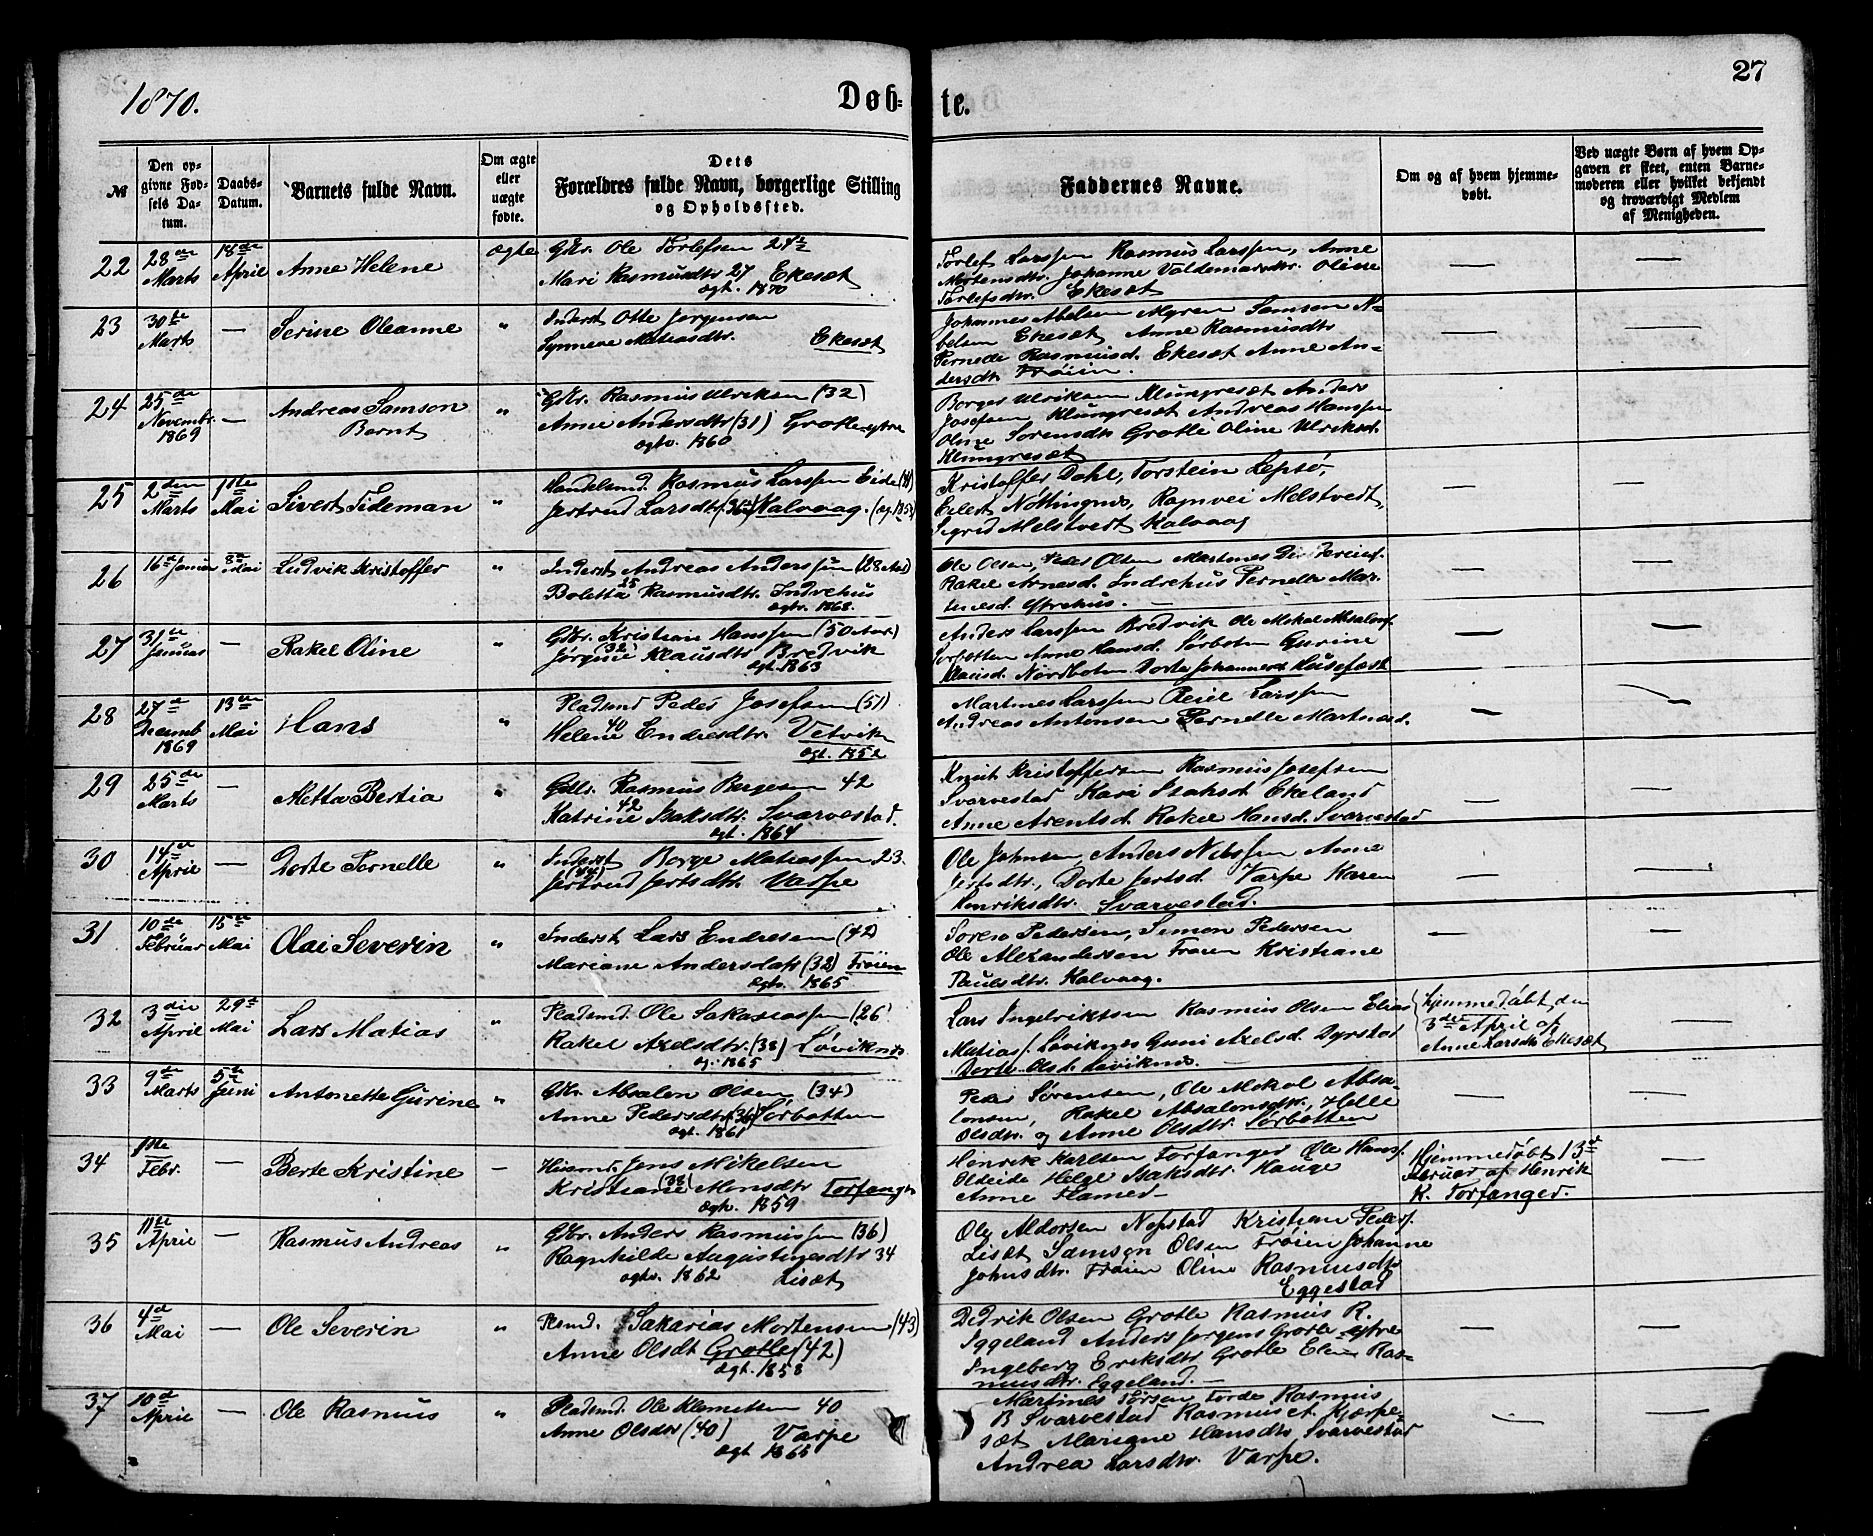 1870.
Døb-
te.
27
№
Den opgivne Fødsels Datum.
Daabs-Datum.
Barnets fulde Navn.
Om ægte eller uægte fødte.
Dets Forældres fulde Navn, borgerlige Stilling og Opholdssted.
Faddernes Navne.
Om og af hvem hjemmedøbt.
Ved uægte Børn af hvem Opgaven er skeet, enten Barnemoderen eller hvilket bekjendt og troværdigt Medlem af Menigheden.
22 28de Marts 18de April Anne Helene ægte Gbr. Ole Torlefsen
Mari Rasmusdtr 27 Ekesæt
ægt. 1870
Torlef Larssen Rasmus Larssen, Anne
Mortensdtr. Johanne Valdemarsdtr. Oline
Torlefsdtr. Ekesæt
— —
23 30te Marts — Serine Oleanne " Inderst Otte Jørgensen
Synneve Matiasdtr. Ekesæt
Johannes Abelsen Myren Samson A-
belsen Ekesæt Anne Rasmusdtr
Pernelle Rasmusd. Ekesæt Anne An-
dersdtr. Frøien.
— —
24 25de Novembr. 1869 — Andreas Samson Bernt " Gbr. Rasmus Ulriksen (32)
Anne Andersdtr (31) Grotle ytre
ægtv. 1860
Borger Ulriksen Klungresæt Anders
Josefsen Klungresæt Andreas Hanssen
Oline Sørensdtr Grotle Oline Ulriksd.
Klungresæt
— —
25 2den Marts 1ste Mai Sivert Tideman " Handelsmd. Rasmus Larssen Eide
Jertrud Larsdtr. Kalvaag.
Kristoffer Dahl, Torstein Lepsø,
Eilert Nøttingnes, Ragnvei Melstvedt,
Sigrid Melstvedt Kalvaag
— —
26 16de Januar 8de Mai Ludvik Kristoffer " Inderst Andreas Anderssen (28 Aar)
Boletta 25 Rasmusdtr. Indrehus
ægtv. 1868.
Ole Olsen, Peder Olsen Martines
Rakel Arnesd. Indrehus Pernelle Mar-
tinesd. Ytrehus.
— —
27 31te Januar — Rakel Oline " Gbr. Kristian Hanssen (50 Aar.)
Jørgine (32) Klausdtr Bredvik
ægt. 1863
Anders Larssen Bredvik Ole Mekal Absalons.
Sørbotten Anne Hansd. Sørbotten Gurine
Klausd. Nordbotten Dorte Johannesd. Husefæst
— —
28 27de Decemb 1869 13de Mai Hans " Pladsmd Peder Josefsen (51)
Helene 40 Endresdtr. Vetvik
ægt. 1852
Martines Larssen Larssen
Andreas Antonsen Pernelle Martinesd.
— —
29 25de Marts — Metta Bertia " Gbr. Rasmus Børgesen 42
Katrine 42 Isaksdtr. Svarvestad.
ægt. 1864
Knut Kristoffersen Rasmus Josefsen
Svarvestad Kari Isaksd. Ekeland
Anne Arentsd. Rakel Hansd. Svarvestad
— —
30 14de April — Dorte Pernelle " Inderst Børge Matiassen 23.
Jertrud Jertsdtr. Varpe
Ole Johnsen, Anders Nilssen Anne
Jertsdtr., Dorte Jertsd. Varpe Karen
Henriksdtr. Svarvestad.
— —
31 10de Februar 15de Mai Olai Severin " Inderst Lars Endresen (42)
Mariane Andersdatr (32) Frøien
ægtv. 1865
Søren Pedersen, Simon Pedersen
Ole Alexandersen Frøien Kristiane
Paulsdtr. Kalvaag.
— —
32 3die April 29de Mai Lars Matias " Pladsmd. Ole Sakariassen (26)
Rakel Axelsdtr. (38) Løviknes
æg. 1865
Lars Ingebriktsen Rasmus Olsen Elias
Matiass. Løviknes Guni Axelsd. Dyrstad
Dorte Olsd. Løviknes. —
Hjemmedøbt den
3die April af
Anne Larsdtr Ekesæt
—
33 9de Marts 5te Juni Antonette Gurine " Gbr. Absalon Olsen (34)
Anne Pedersdtr (36) Sørbotten
ægt. 1861
Peder Sørensen, Ole Mekal Absa-
lonsen, Rakel Absalonsdtr., Helle
Olsdtr. og Anne Olsdtr. Sørbotten
— —
34 1ste Febr. — Berte Kristine — Husmd. Jens Mikelsen
Kristiane (38) Monsdtr Torfanger
ægtv. 1859
Henrik Karlsen Torfanger Ole Hanss.
Oldeide Helge Isaksdtr. Hauge
Anne Flamer —
Hjemmedøbt 13de
Februar af Henrik
K. Torfanger.
—
35 11te April — Rasmus Andreas " Gbr. Anders Rasmussen (36)
Ragnhilde Augustinesdtr 34
ægtv. 1862 Lisæt
Ole Aldorsen Nepstad Kristian Peders.
Lisæt Samson Olsen Frøien Johanne
Johnsdtr. Frøien Oline Rasmusdtr
Eggestad
— —
36 4de Mai — Ole Severin " Plsmd. Sakarias Mortensen (43)
Anne Olsdt Grotle (42)
ægt. 1858
Didrik Olsen Grotle Rasmus R.
Iggeland Anders Jørgens Grotle ytre
Ingeberg Eriksdtr Grotle Elen Ras-
musdtr. Eggeland. —
— —
37 10de April — Ole Rasmus " Pladsmd. Ole Klemetsen 40
Anne Olsdtr (40) Varpe
ægt 1865
Martines Torde Rasmus
B Svarvestad Rasmus Kjærpe-
sæt Mariane Hansdtr. Svarvestad
Andrea Larsdtr. Varpe.
— —